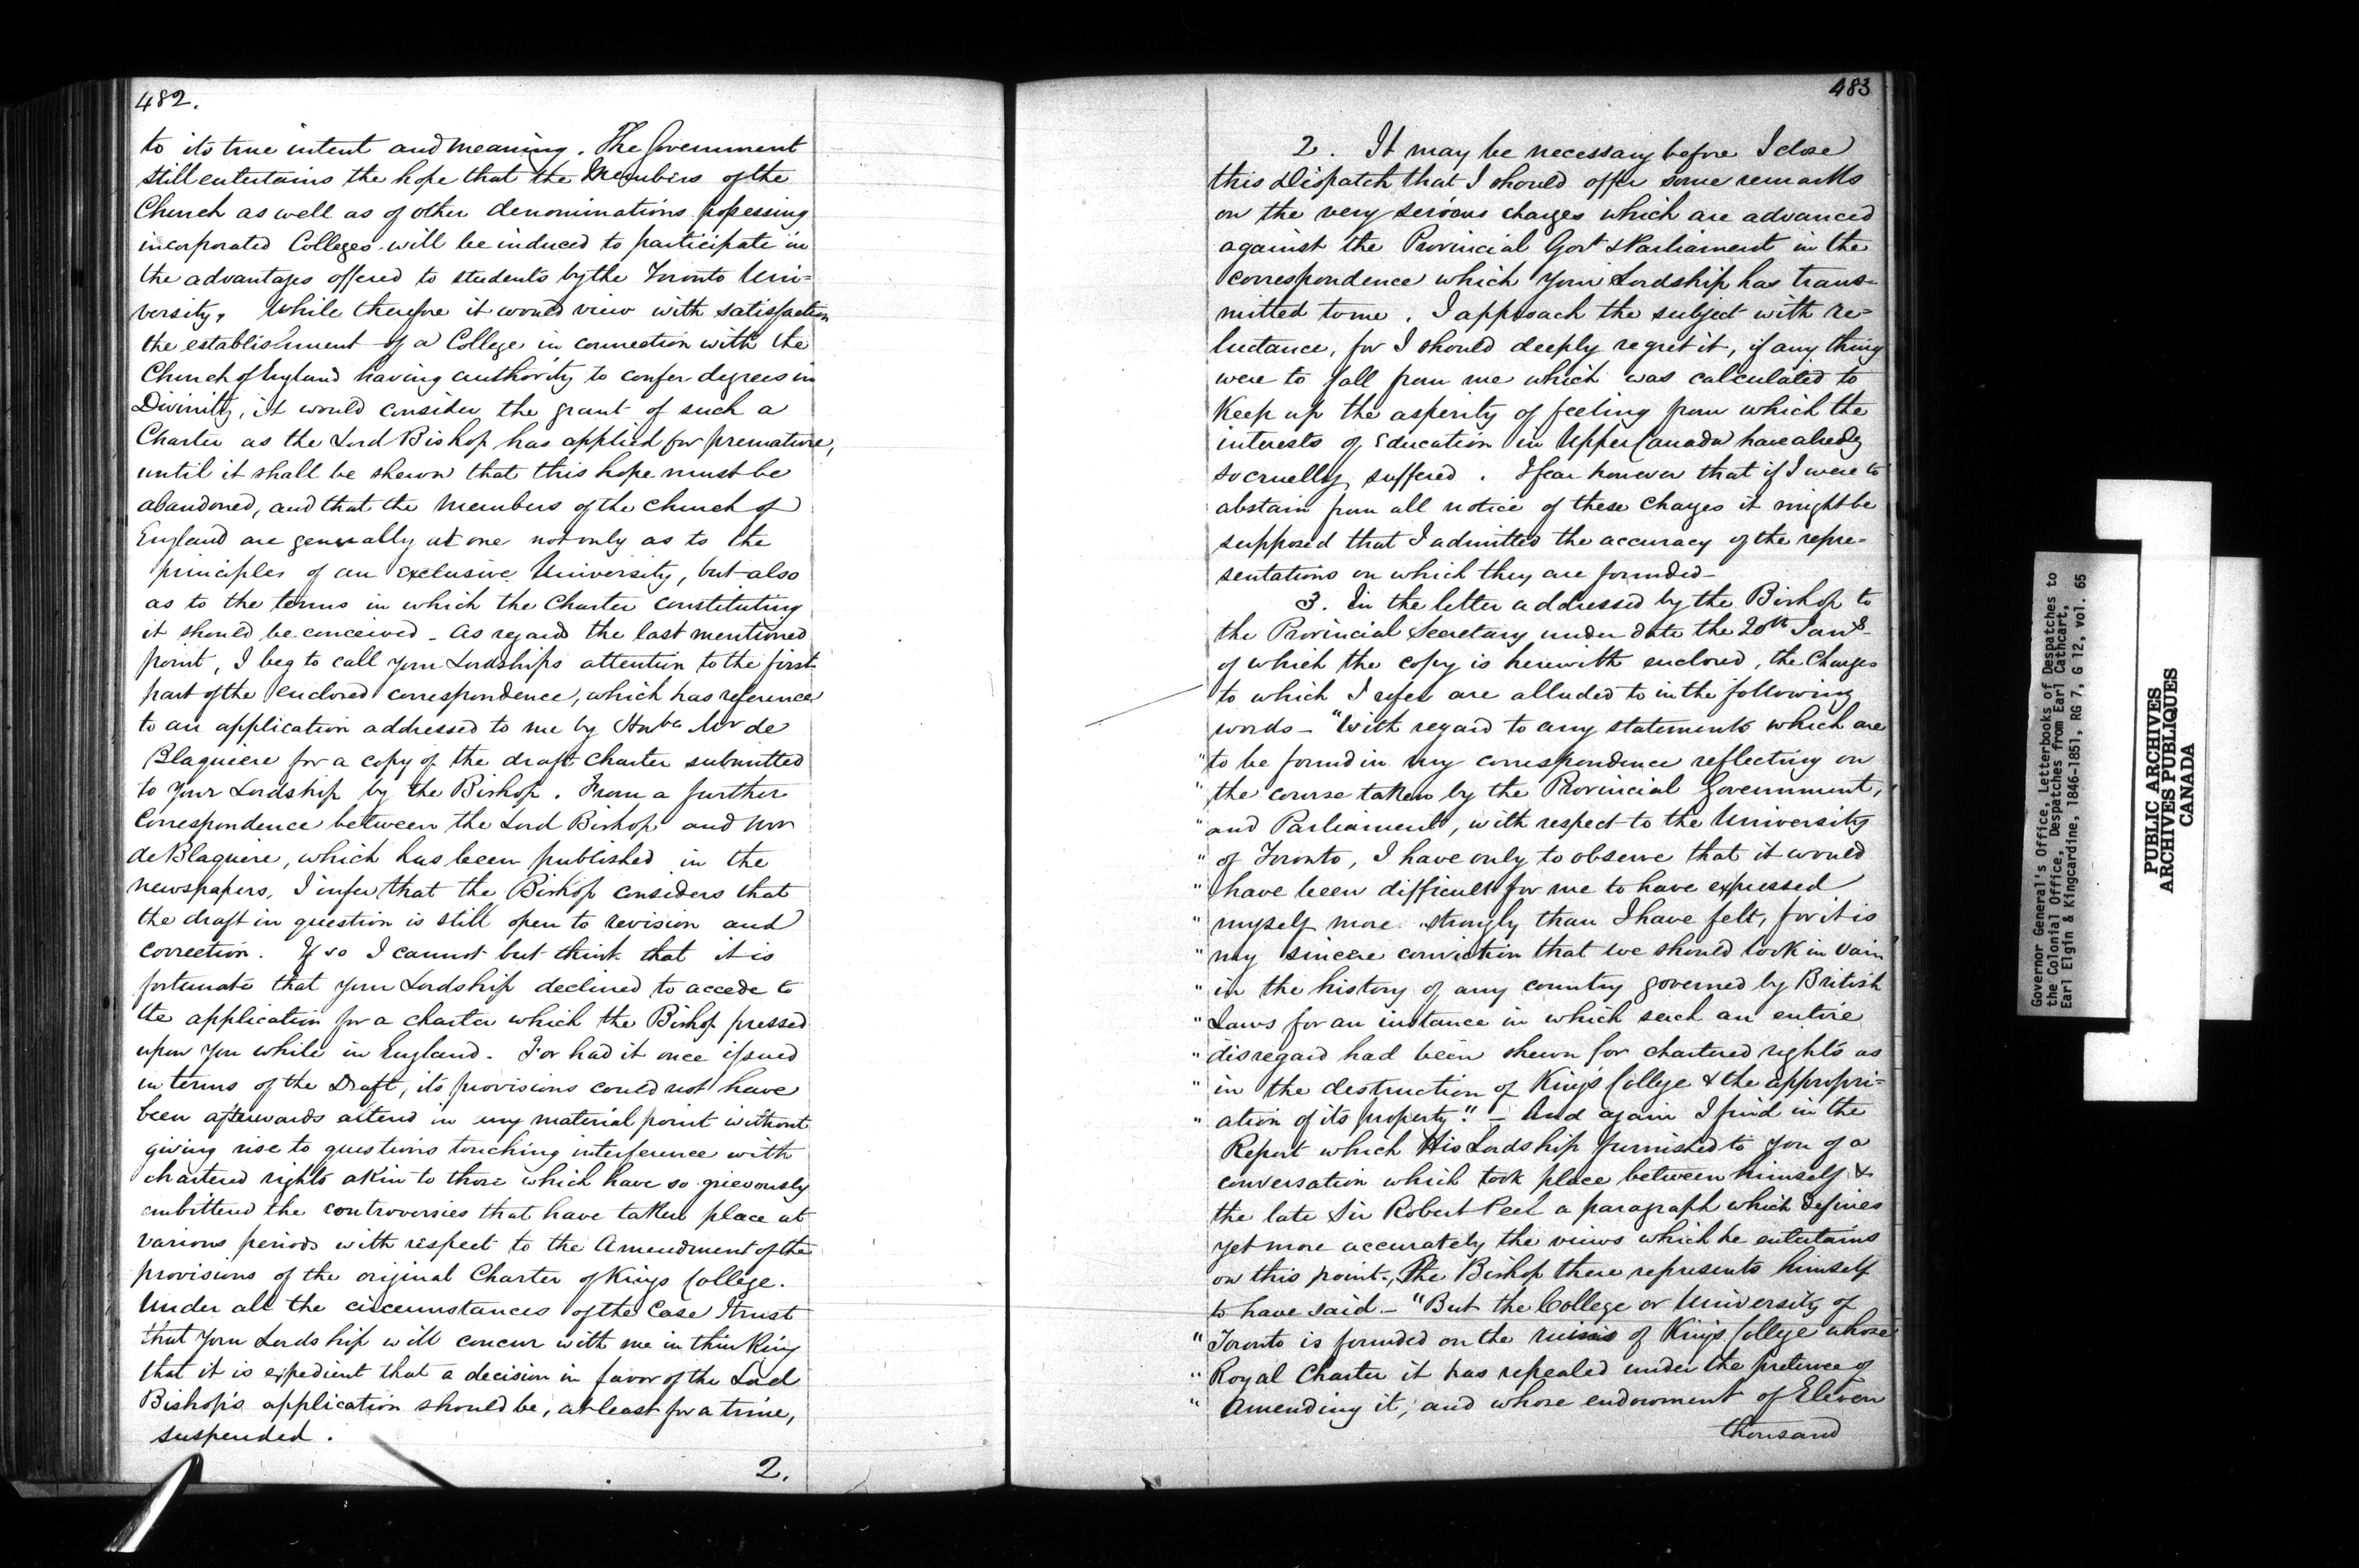 482.
to its true intent and meaning. The Government
still entertains the hope that the Members of the
Church as well as of other denominations possessing
incorporated Colleges will be induced to participate in
the advantages offered to students by the Toronto Uni=
versity. While therefore it would view with satisfaction
the establishment of a College in connection with the
Church of England having authority to confer degrees in
Divinity, it would consider the grant of such a
Charter as the Lord Bishop has applied for premature,
until it shall be shewn that this hope must be
abandoned, and that the Members of the Church of
England are generally at one not only as to the
principles of an exclusive University, but also
as to the terms in which the Charter constituting
it should be conceived - As regards the last mentioned
point, I beg to call your Lordships attention to the first
part of the enclosed correspondence, which has reference
to an application addressed to me by Honble Mr de
Blaquiere for a copy of the draft Charter submitted
to Your Lordship by the Bishop. From a further
Correspondence between the Lord Bishop and Mr
de Blaquiere, which has been published in the
newspapers, I infer that the Bishop considers that
the draft in question is still open to revision and
correction. If so I cannot but think that it is
fortunate that your Lordship declined to accede to
the application for a charter which the Bishop pressed
upon you while in England. For had it once issued
in terms of the Draft, its provisions could not have
been afterwards altered in any material point without
giving rise to questions touching interference with
chartered rights akin to those which have so grievously
embittered the controversies that have taken place at
various periods with respect to the Amendment of the
provisions of the original Charter of Kings College.
Under all the circumstances of the Case I trust
that your Lordship will concur with me in thinking
that it is expedient that a decision in favor of the Lord
Bishop's application should be, at least for a time,
suspended.
2.
483
2. It may be necessary before I close
this Dispatch that I should offer some remarks
on the very serious charges which are advanced
against the Provincial Govt & Parliament in the
correspondence which Your Lordship has trans=
mitted to me. I approach the subject with re=
luctance, for I should deeply regret it, if any thing
were to fall from me which was calculated to
Keep up the asperity of feeling from which the
interests of Education in Upper Canada have already
so cruelly suffered. I fear however that if I were to
abstain from all notice of these Charges it might be
supposed that I admitted the accuracy of the repre=
sentations on which they are founded -
3. In the letter addressed by the Bishop to
the Provincial Secretary under date the 20th Jany
of which the copy is herewith enclosed, the Charges
to which I refer are alluded to in the following
words - "With regard to any statements which are
" to be found in my correspondence reflecting on
" the course taken by the Provincial Government,
" and Parliament, with respect to the University
" of Toronto, I have only to observe that it would
" have been difficult for me to have expressed
" myself more strongly than I have felt, for it is
" my sincere conviction that we should look in vain
" in the history of any country governed by British
" Laws for an instance in which such an entire
" disregard had been shewn for chartered rights as
" in the destruction of King's College & the appropri=
" ation of its property." - And again I find in the
Report which His Lordship furnished to you of a
conversation which took place between himself &
the late Sir Robert Peel a paragraph which defines
yet more accurately the views which he entertains
on this point. The Bishop there represents himself
to have said - "But the College or University of
" Toronto is founded on the ruins of King's College whose
" Royal Charter it has repealed under the pretence of
" Amending it, and whose endowment of Eleven
thousand
Governor General's Office, Letterbooks of Despatches to
the Colonial Office, Despatches from Earl Cathcart,
Earl Elgin & Kingcardine, 1846-1851, RG 7, G 12, vol. 65
PUBLIC ARCHIVES
ARCHIVES PUBLIQUES
CANADA